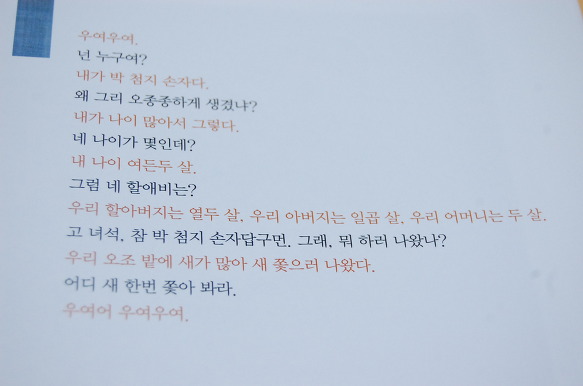 우여우여.
넌 누구여?
내가 박 첨지 손자다.
왜 그리 오종종하게 생겼냐?
내가 나이 많아서 그렇다.
네 나이가 몇인데?
내 나이 여든두 살.
그럼 네 할애비는?
우리 할아버지는 열두 살, 우리 아버지는 일곱 살, 우리 어머니는 두 살.
고 녀석, 참 박 첨지 손자답구먼. 그래, 뭐 하러 나왔나?
우리 오조 밭에 새가 많아 새 쫓으러 나왔다.
어디 새 한번 쫓아 봐라.
우여어 우여우여.